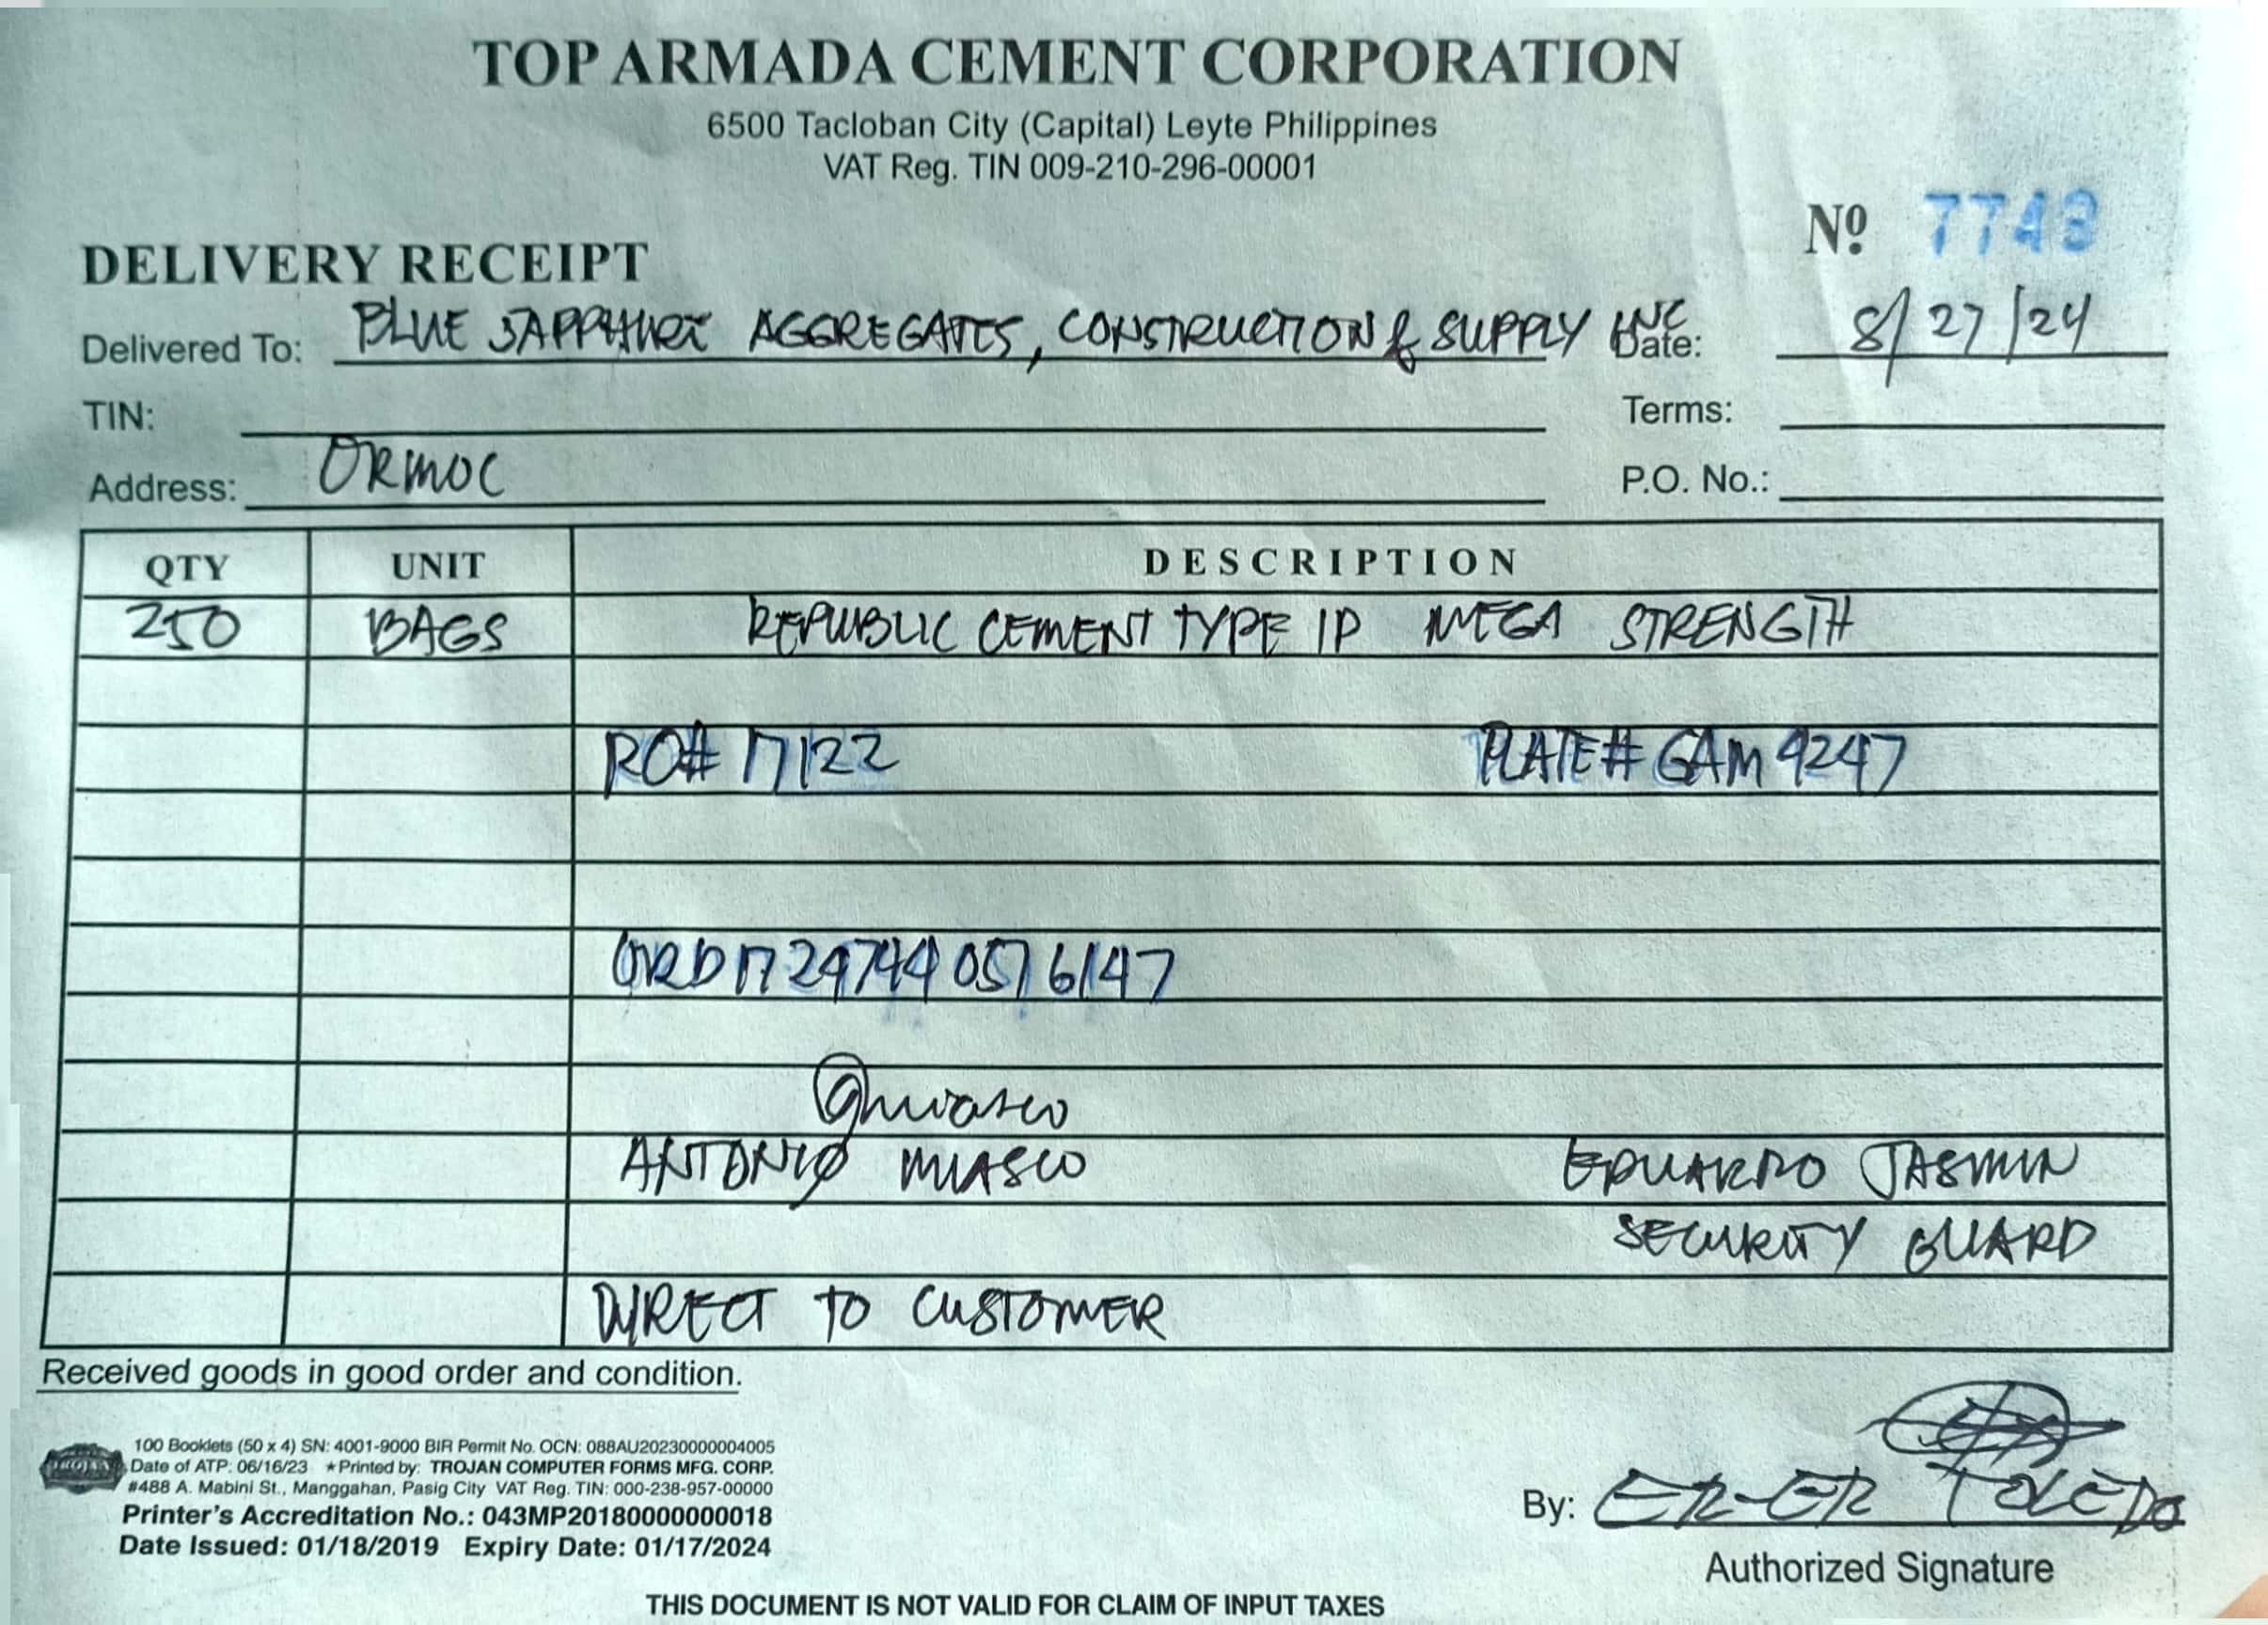 TOP ARMADA CEMENT CORPORATION
6500 Tacloban City (Capital) Leyte Philippines
VAT Reg. TIN 009-210-296-00001
Nº 7743
DELIVERY RECEIPT
Delivered To: BLUE SAPPHIRE AGGREGATES, CONSTRUCTION & SUPPLY INC Date: 8/27/24
TIN: Terms:
Address: ORMOC P.O. No.:
QTY UNIT DESCRIPTION
250 BAGS REPUBLIC CEMENT TYPE IP MEGA STRENGTH
RO# 17122 PLATE# GAM 9247
ORD17297440576147
ANTONIO MIASCO EDUARDO JASMIN
SECURITY GUARD
DIRECT TO CUSTOMER
Received goods in good order and condition.
100 Booklets (50 x 4) SN: 4001-9000 BIR Permit No. OCN: 088AU20230000004005
TROJAN Date of ATP: 06/16/23 ★Printed by: TROJAN COMPUTER FORMS MFG. CORP.
#488 A. Mabini St., Manggahan, Pasig City VAT Reg. TIN: 000-238-957-00000
Printer's Accreditation No.: 043MP20180000000018
Date Issued: 01/18/2019 Expiry Date: 01/17/2024
By: ER-ER TOLEDO
Authorized Signature
THIS DOCUMENT IS NOT VALID FOR CLAIM OF INPUT TAXES